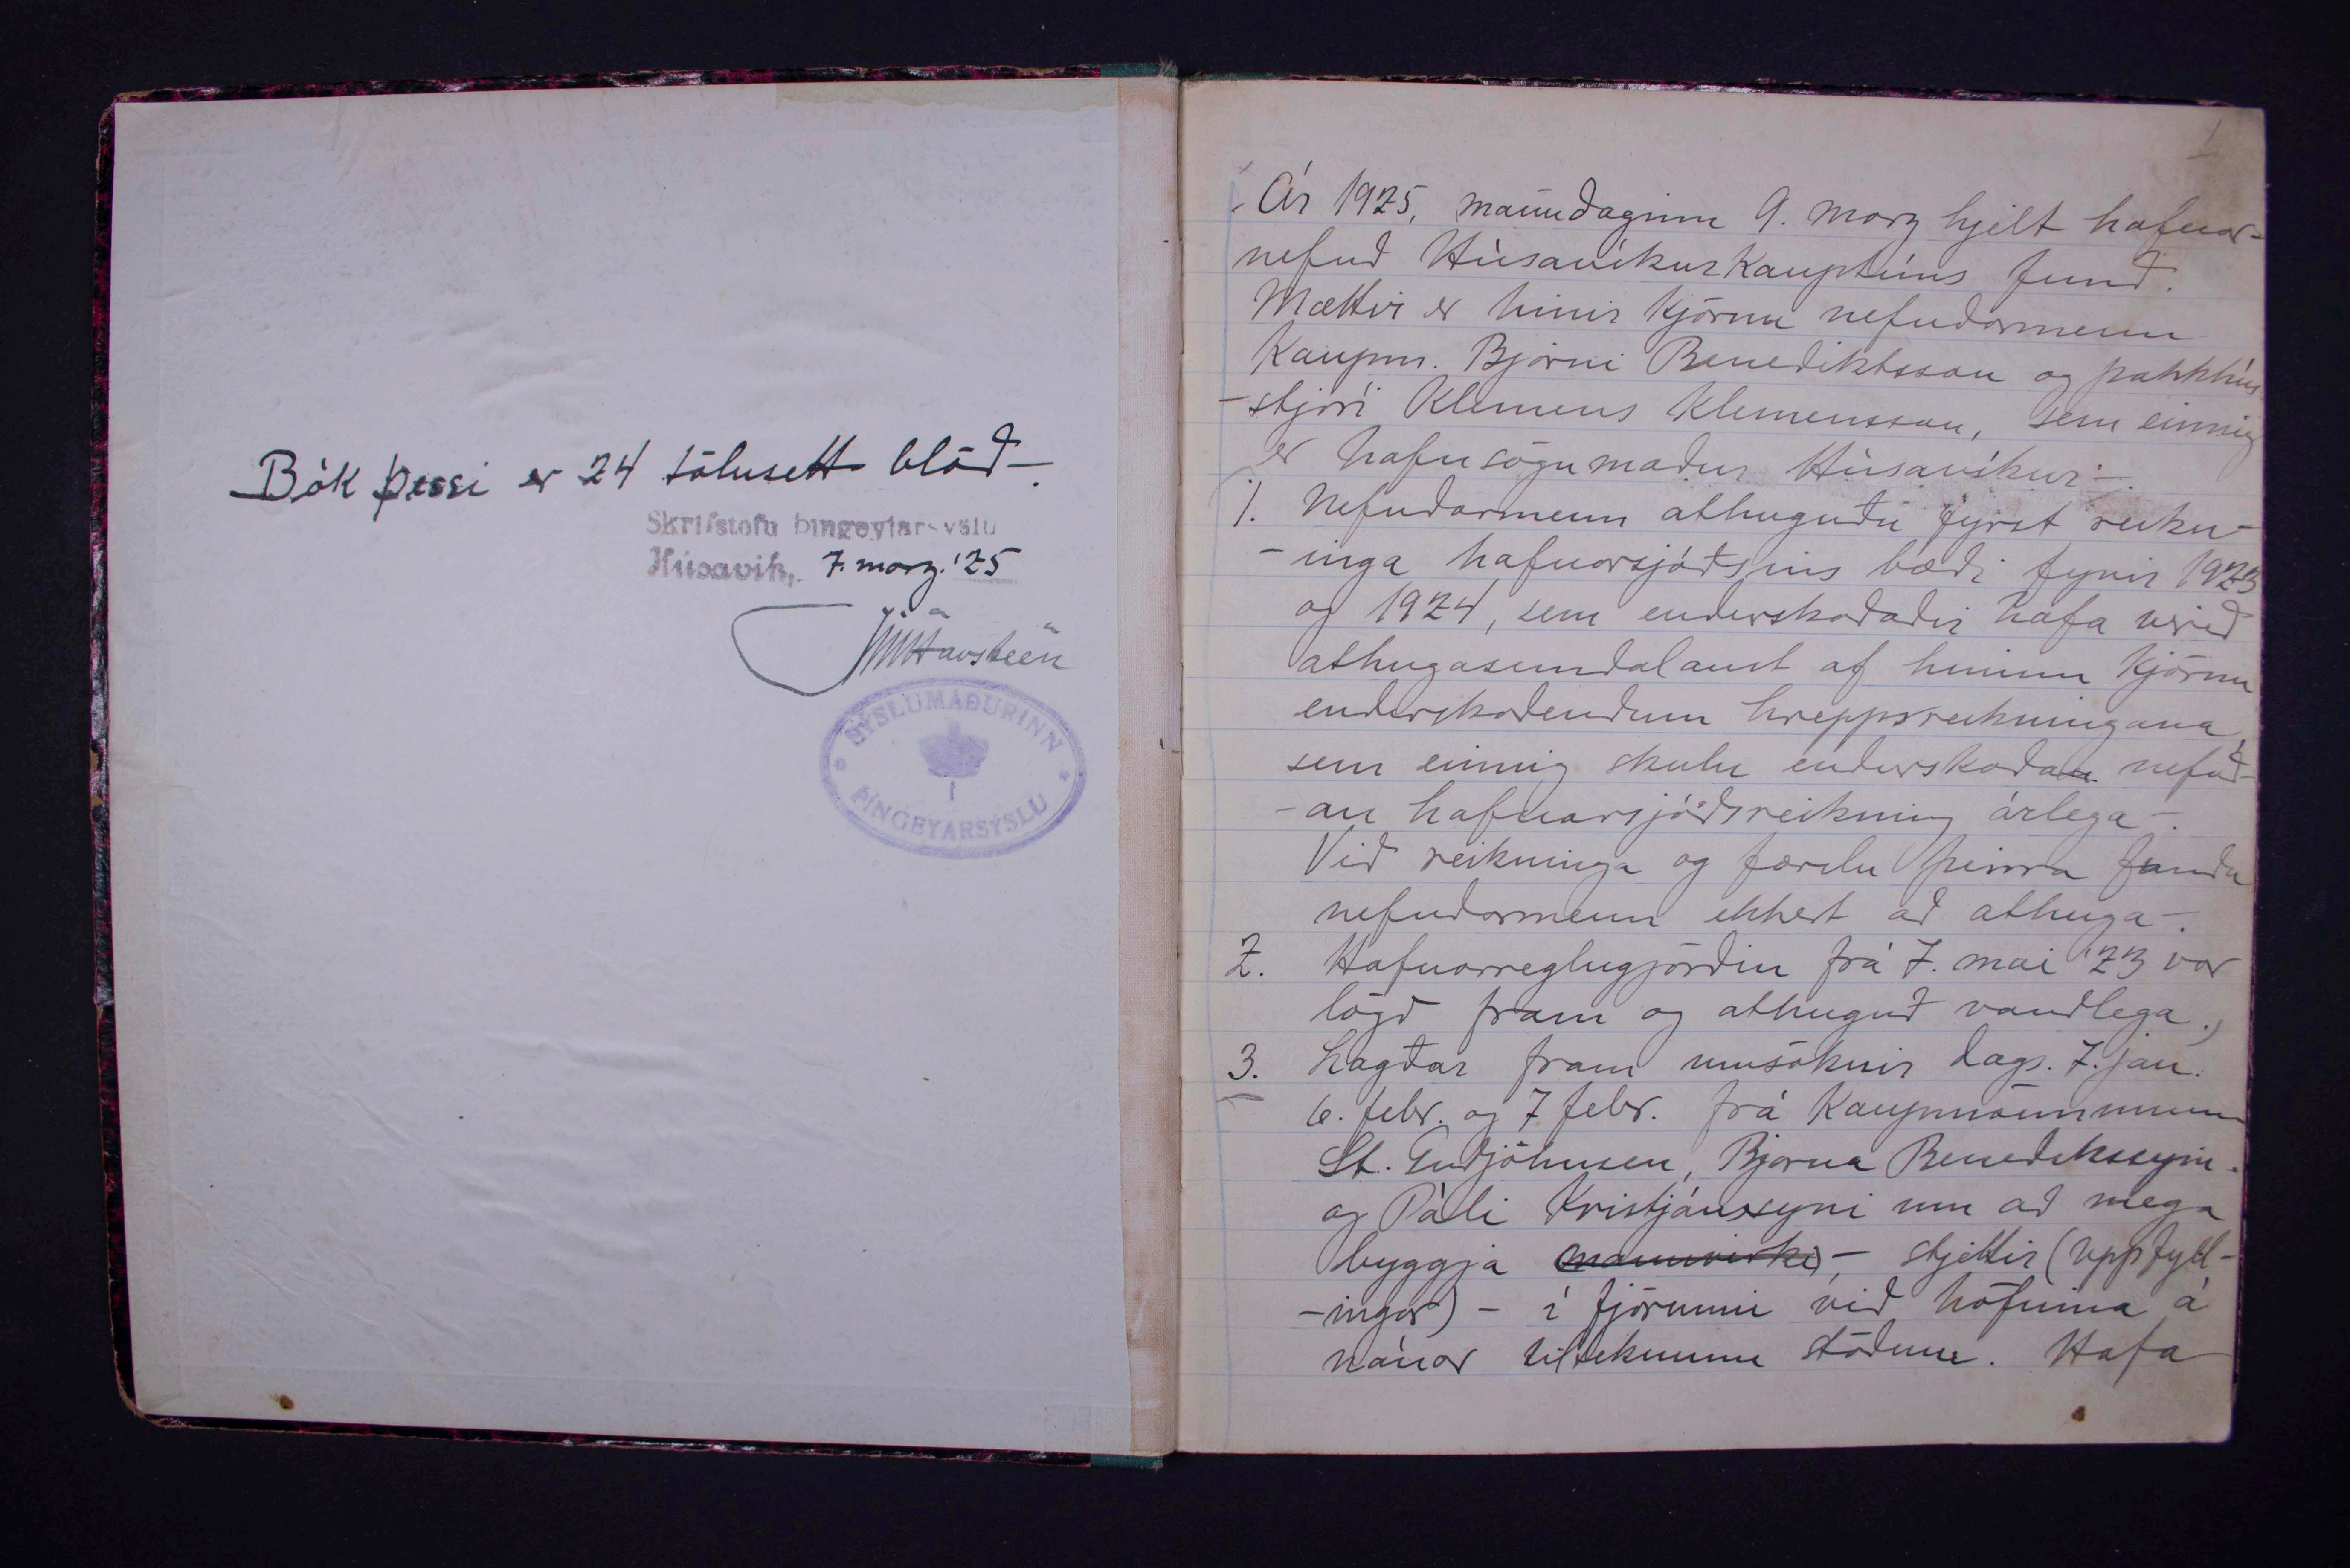 Bók þessi er 24 tölusett blöð —.
Skrifstofu Þingeyjarsýslu
Húsavík, 7. marz. '25
JúlHavsteen
SÝSLUMAÐURINN
ÞINGEYARSÝSLU
1
Ár 1925, mánudaginn 9. marz hjelt hafnar-
nefnd Húsavíkurkauptúns fund.
Mættir er hinir kjörnu nefndarmenn
Kaupm. Björni Benediktsson og pakkhús
-stjóri Klemens Klemensson, sem einnig
er hafnsögumaður Húsavíkur —.
1. Nefndarmenn athuguðu fyrst reikn-
- inga hafnarsjóðsins bæði fyrir 1923
og 1924, sem endurskoðaðir hafa verið
athugasemdalaust af hinum kjörnu
endurskoðendum hreppsreikningana,
sem einnig skulu endurskoða nefnd-
-an hafnarsjóðsreikning árlega —.
Við reikninga og færslu þeirra fundu
nefndarmenn ekkert að athuga —.
2. Hafnarreglugjörðin frá 7. mai '23 var
lögð fram og athuguð vandlega.,
3. Lagðar fram umsóknir dags. 7. jan.
6. febr. og 7 febr. frá Kaupmönnunum
St. Guðjohnsen, Bjarna Benedikssyni.
og Páli Kristjánssyni um að mega
byggja mannvirki) — stjettir (uppfyll-
-ingar) - í fjörunni við höfnina á
nánar tilteknum stöðum. Hafa